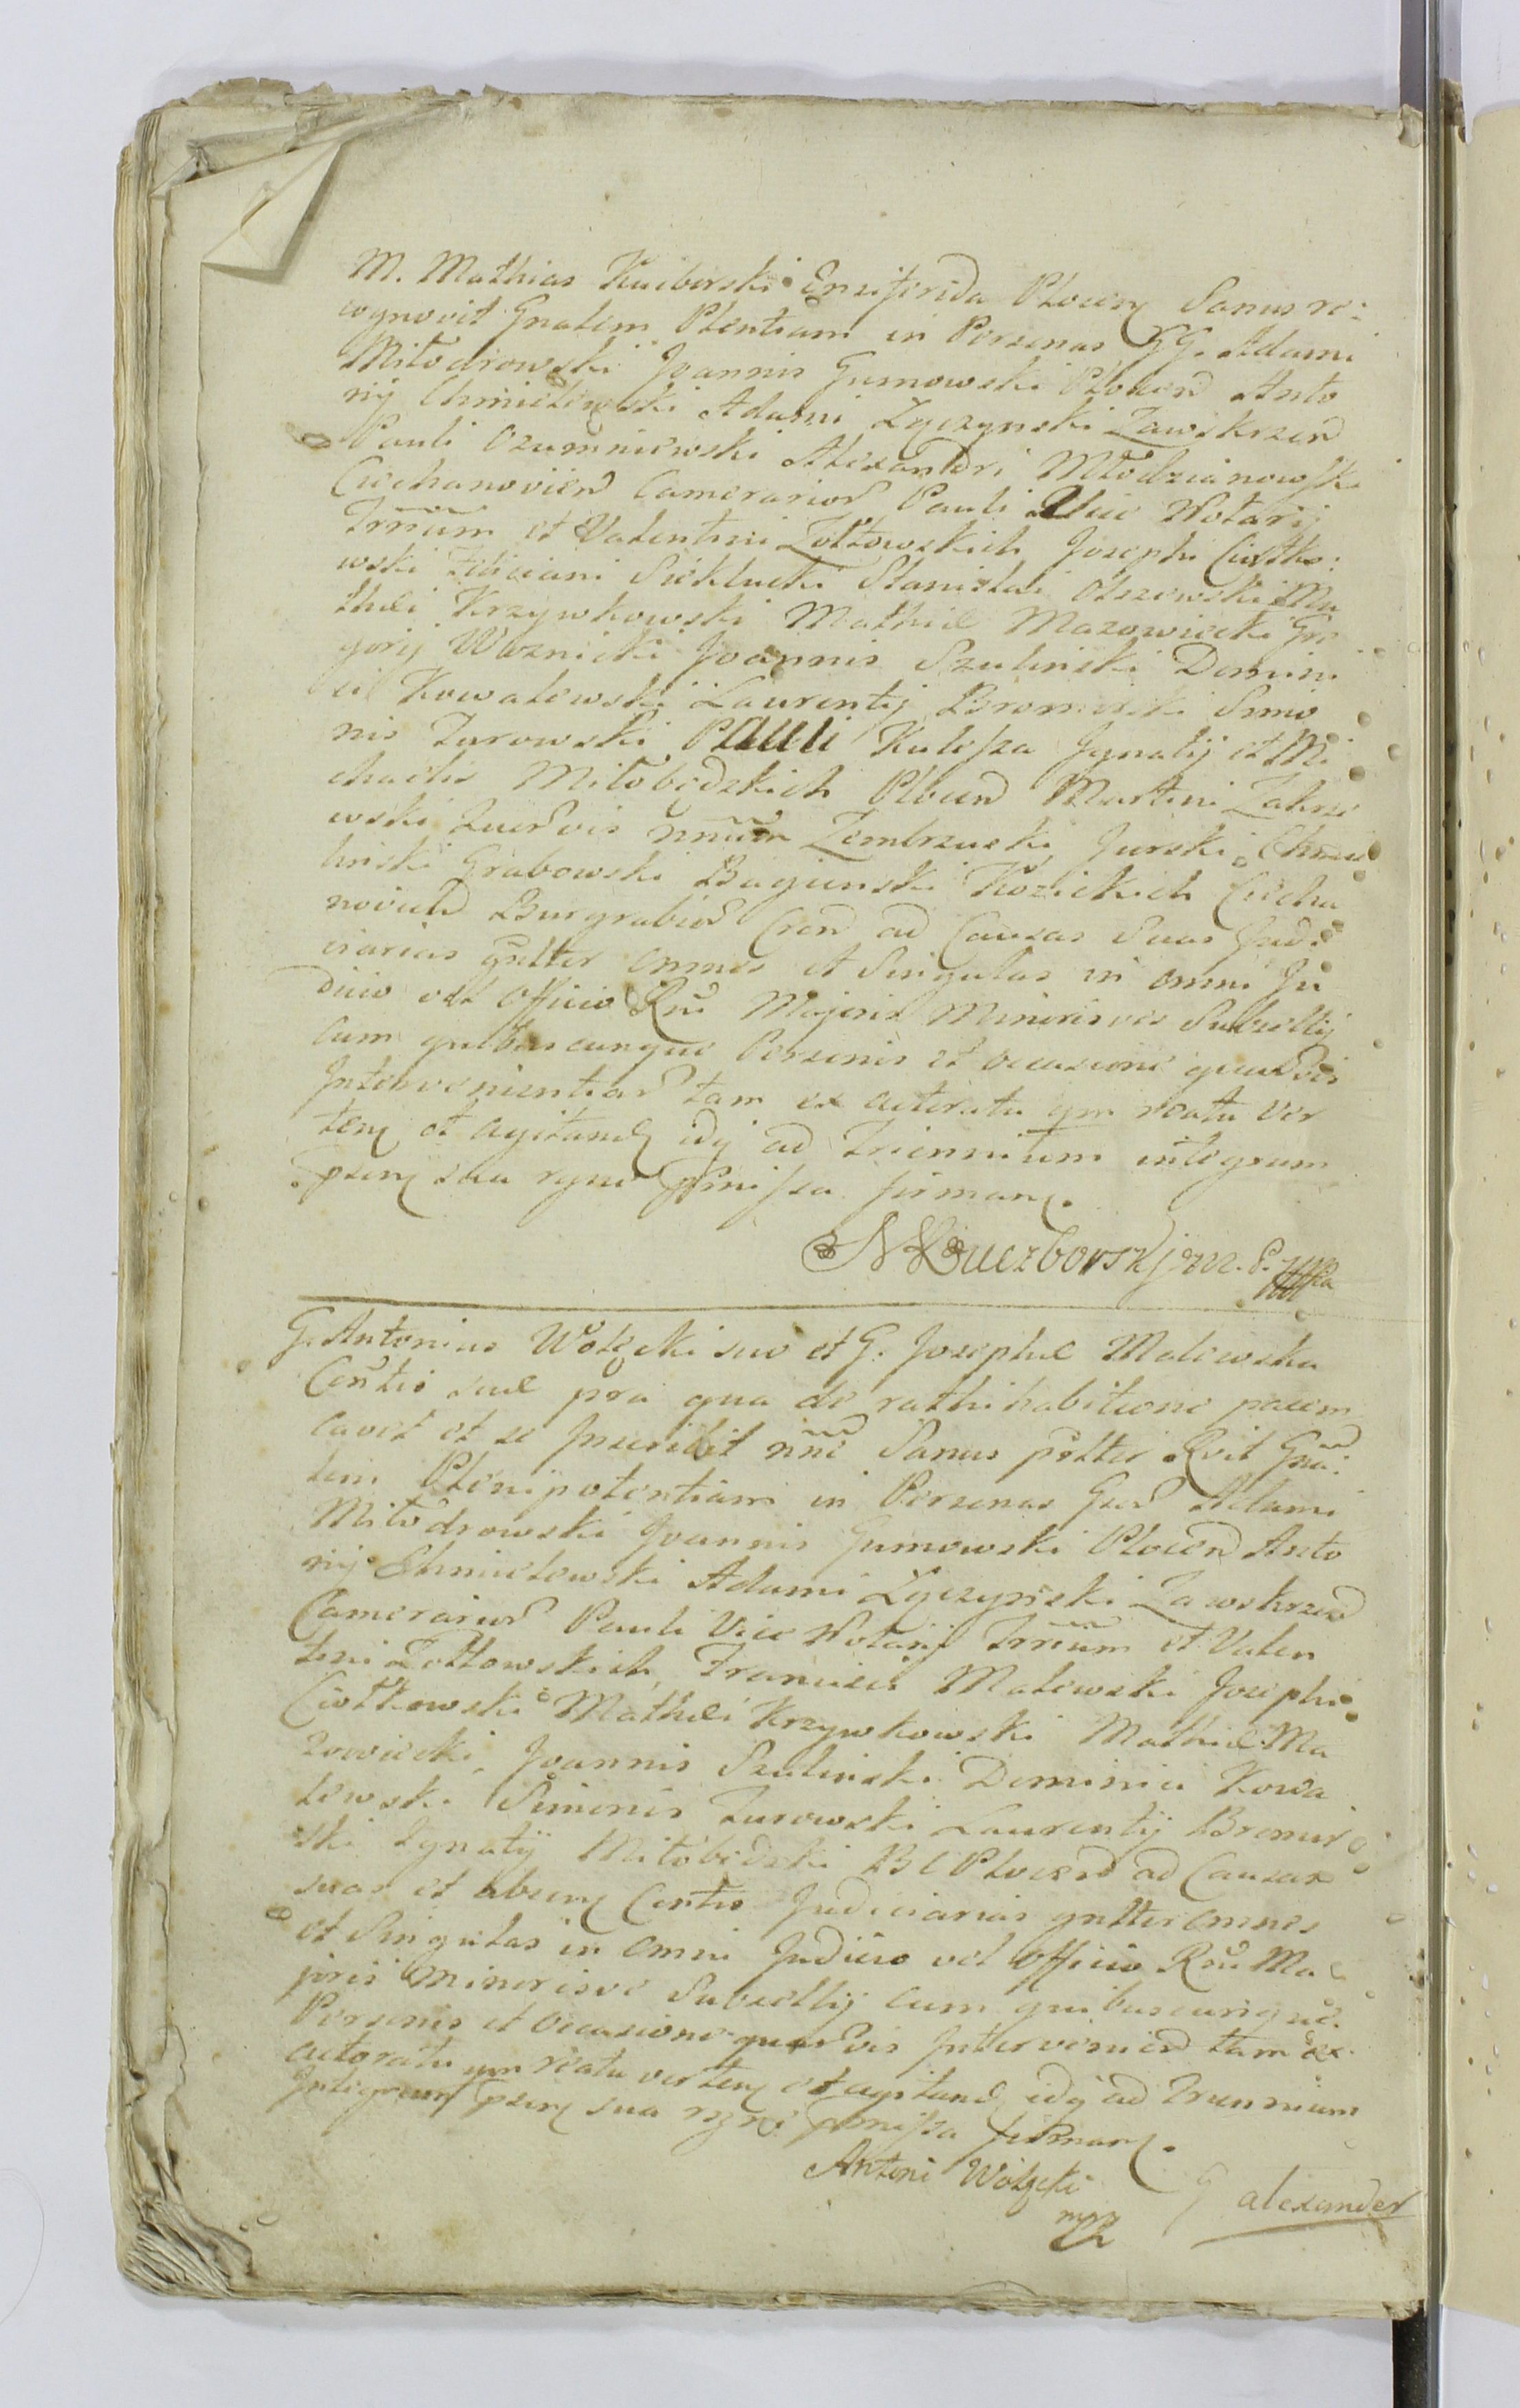 M. Mathias Kuiborski Ensiferida Plocen Sanus re=
cognovit Gnalem Plentiam in Personas GG. Adami
Miłodrowski Joannis Gumowski Plocen Anto
nij Chmielewski Adami Zyczynski Zawskrzen
Pauli Ozumniewski Alexandri Młodzianowski
Ciechanovien Camerarior Pauli Vice Notarij
Trrium et Valentini Zołtowskich Josephi Ciotko:
wski Feliciani Sieklucki Stanislai Olszewski Ma
thei Krzywkowski Mathiæ Mazowiecki Gre
gorij Woznicki Joannis Szulinski Domini
ci Kowalewski Laurentij Bromirski Simo
nis Zurowski Pauli Kulesza Ignatij et Mi
chaelis Miłobędzkich Plocen Martini Zakrze
wski nnum Zembrzuski Gurski Chmie
linski Grabowski Bagienski Kozickich Ciecha
novien Burgrabior Cren ad Causas Suas Judi
ciarias gnlter omnes et Singulas in omni Ju
dicio vel Officio Rni Majoris Minorisve Subsellij
cum quibuscunque Personis et occasione quarvis
Intervenientiar tam ex actoratu qm reatu ver
ten et agitand idq ad Triennium integrum
psen sua rgne pmissa firman.
M Kuczborskj m. p.
G. Antonius Wołęcki suo et G. Josephæ Malewska
Contis suæ pra qua de rathihabitione pacem
cavet et se Inscribit nne Sanus pslter Rvit Gna:
lem Plenipotentiam in Personas Gsor Adami
Miłodrowski Joannis Gumowski Plocen Anto
nij Chmielewski Adami Zyczynski Zawskrzen
Camerarior Pauli Vice Notarij Trrium et Valen
tini Zołtowskich, Francisci Malewski Josephi
Ciotkowski Mathei Krzywkowski Mathiæ Ma
zowiecki, Joannis Szulinski Dominici Kowa
lewski Simonis Zurowski Laurentij Bromir
ski Ignatij Miłobędzki BC Plocen ad Causas
suas et absen Contis Judiciarias gnlter omnes
et Singulas in omni Judicio vel Officio Rni Ma
joris Minorisve Subsellij cum quibuscunque
Personis et occasione quarvis Intervenien tam ex
actoratu qm reatu verten et agitand idq ad Triennium
Integrum psen sua rgne pmissa firman.
Antoni Wołęcki
mp
G alexander